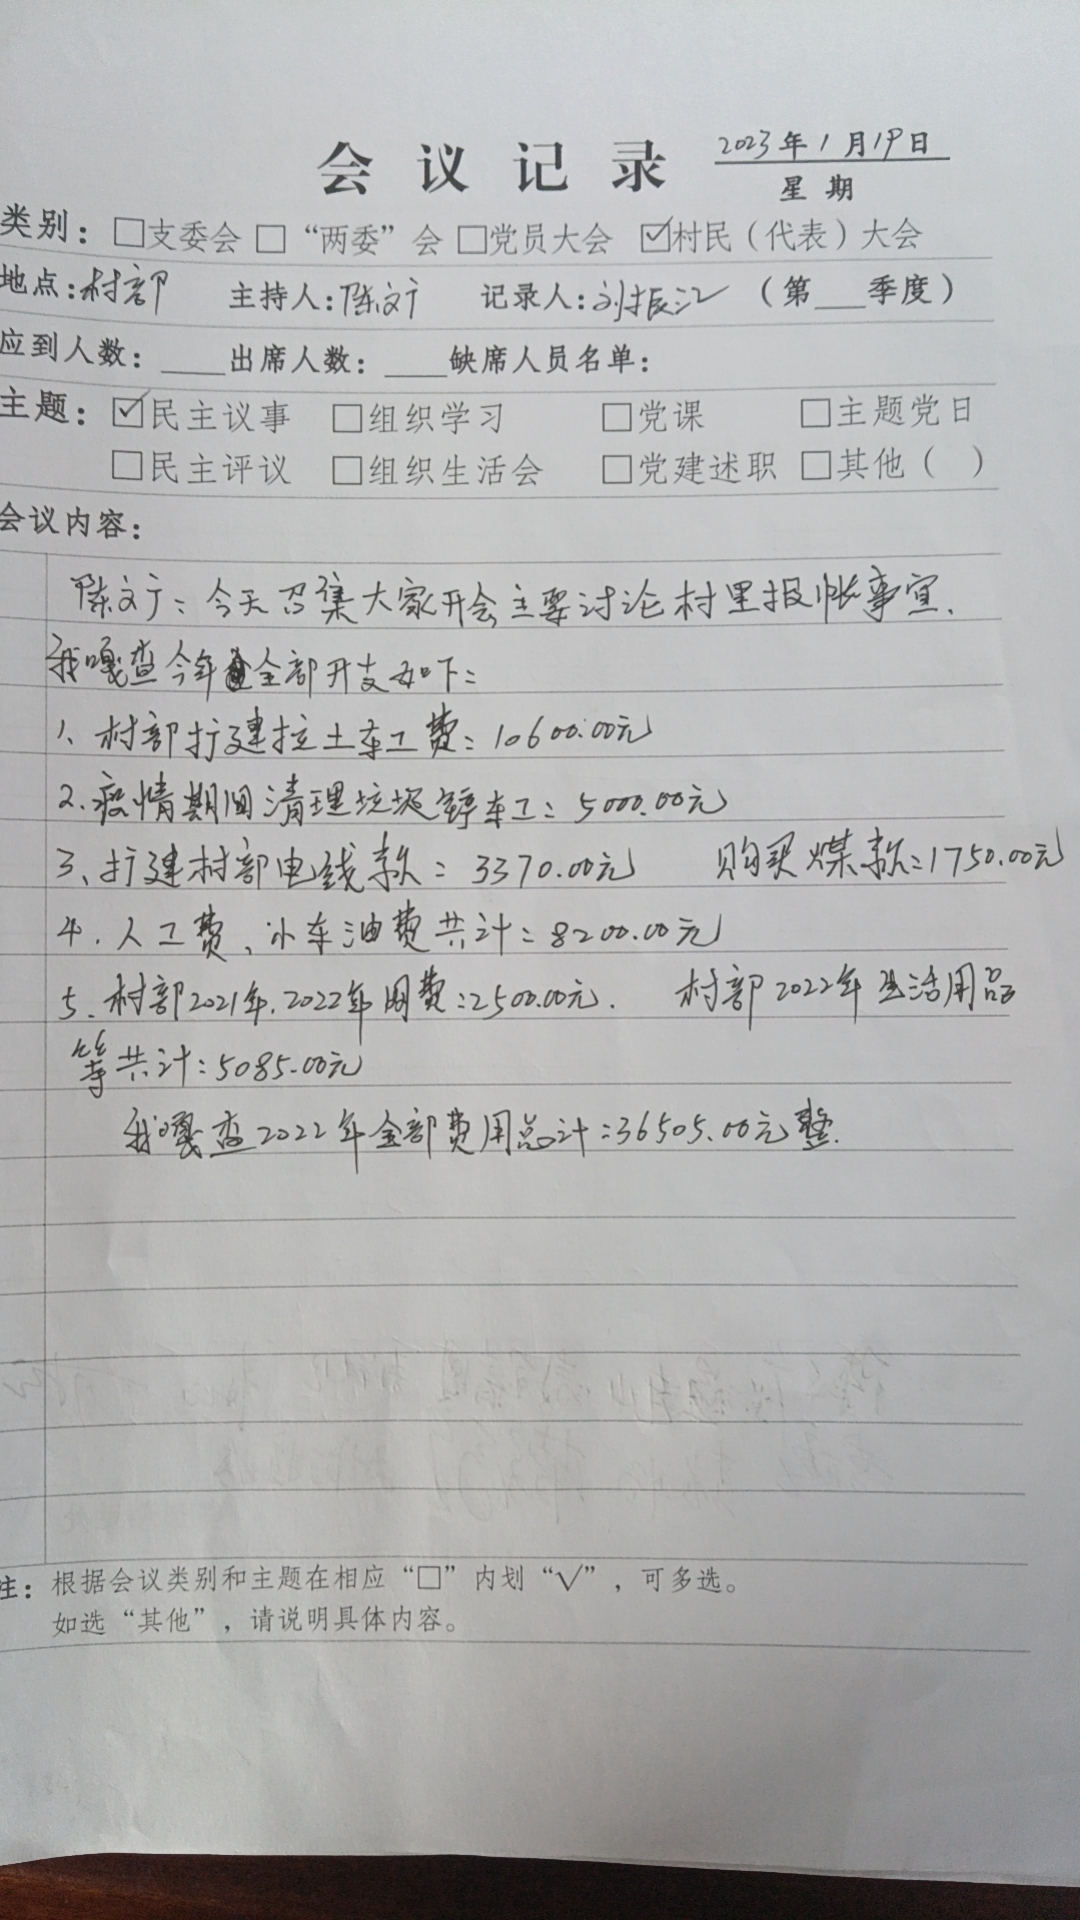 会议记录 2023年1月19日
星期
类别：□支委会 □“两委”会 □党员大会 ☑村民（代表）大会
地点：村部 主持人：陈文广 记录人：刘振江 （第___季度）
应到人数：____出席人数：____缺席人员名单：
主题：☑民主议事 □组织学习 □党课 □主题党日
□民主评议 □组织生活会 □党建述职 □其他（ ）
会议内容：
陈文广：今天召集大家开会主要讨论村里报账事宜.
我嘎查今年全部开支如下：
1、村部扩建拉土车工费：10600.00元
2.疫情期间清理垃圾铲车工：5000.00元
3、扩建村部电线款：3370.00元 购买煤款：1750.00元
4.人工费、小车油费共计：8200.00元
5.村部2021年.2022年网费：2500.00元. 村部2022年生活用品
等共计：5085.00元
我嘎查2022年全部费用总计：36505.00元整.
注：根据会议类别和主题在相应“□”内划“√”，可多选。
如选“其他”，请说明具体内容。